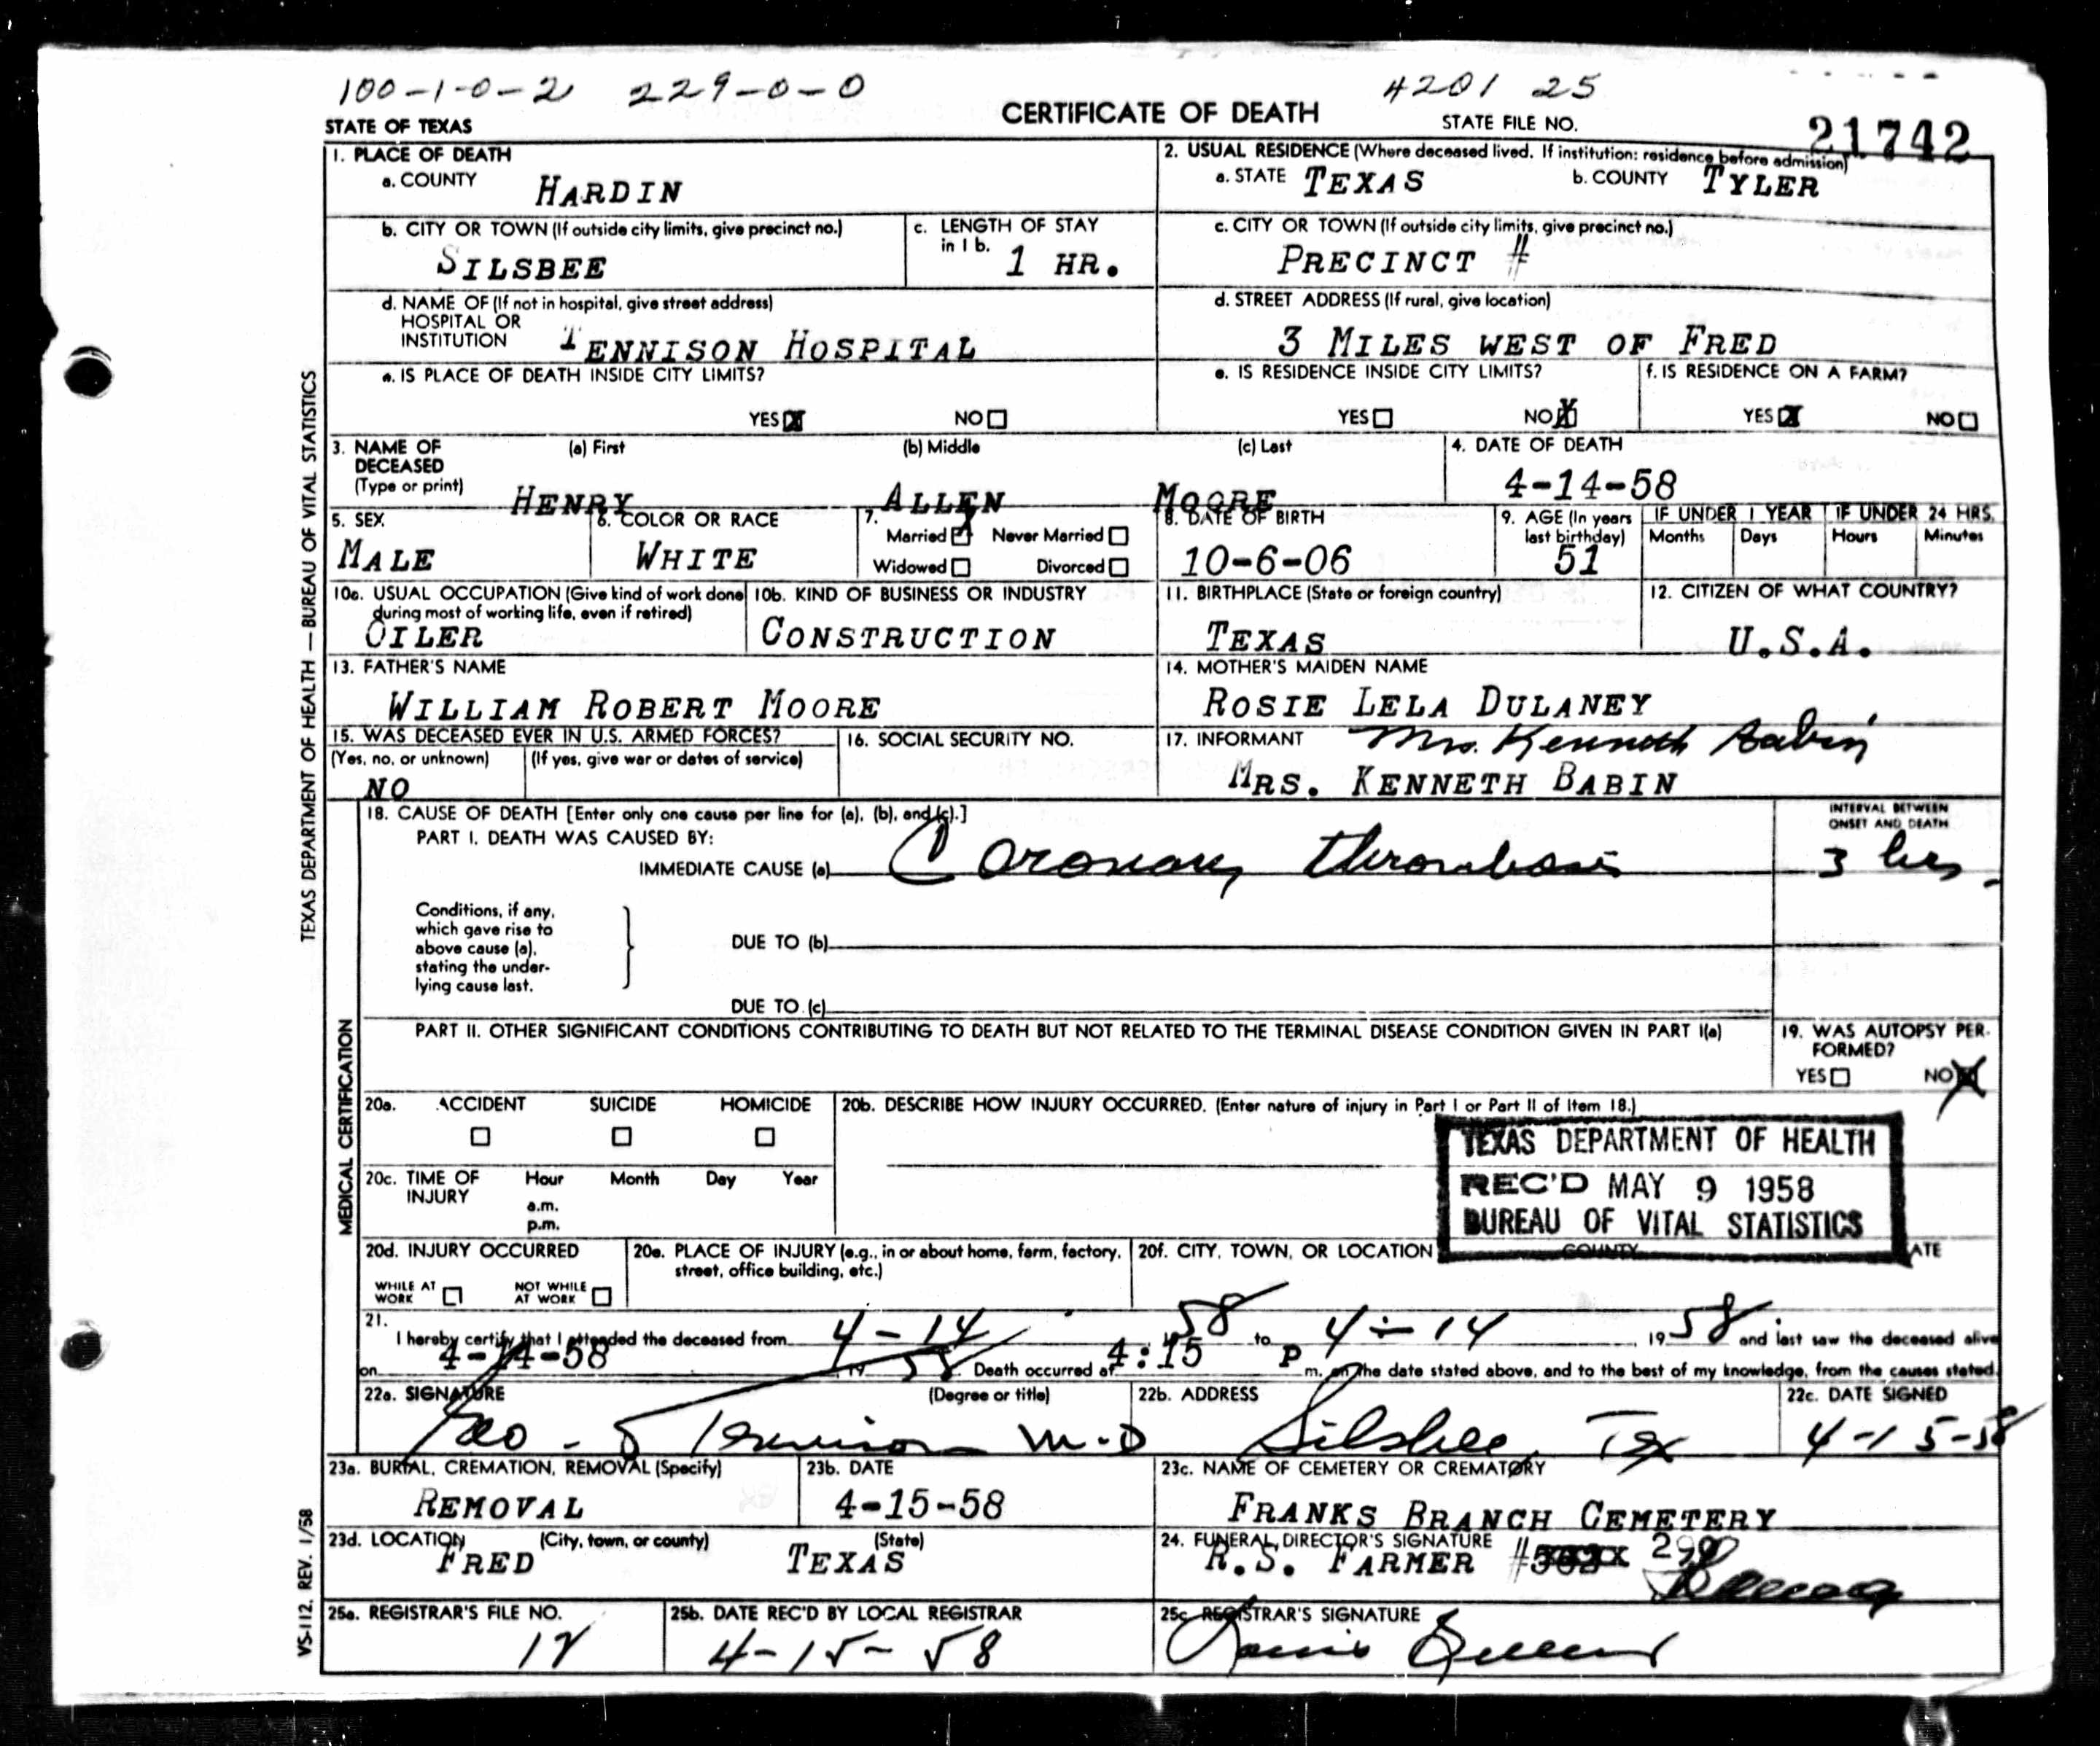 100-1-0-2 229-0-0 4201 25
STATE OF TEXAS CERTIFICATE OF DEATH STATE FILE NO. 21742
TEXAS DEPARTMENT OF HEALTH — BUREAU OF VITAL STATISTICS
1. PLACE OF DEATH
a. COUNTY HARDIN
2. USUAL RESIDENCE (Where deceased lived. If institution: residence before admission)
a. STATE TEXAS b. COUNTY TYLER
b. CITY OR TOWN (If outside city limits, give precinct no.)
SILSBEE
c. LENGTH OF STAY
in 1 b. 1 HR.
c. CITY OR TOWN (If outside city limits, give precinct no.)
PRECINCT #
d. NAME OF (If not in hospital, give street address)
HOSPITAL OR
INSTITUTION TENNISON HOSPITAL
d. STREET ADDRESS (If rural, give location)
3 MILES WEST OF FRED
e. IS PLACE OF DEATH INSIDE CITY LIMITS?
YES X NO
e. IS RESIDENCE INSIDE CITY LIMITS?
YES NO X
f. IS RESIDENCE ON A FARM?
YES X NO
3. NAME OF DECEASED (Type or print)
(a) First (b) Middle (c) Last
HENRY ALLEN MOORE
4. DATE OF DEATH
4-14-58
5. SEX
MALE
6. COLOR OR RACE
WHITE
7.
Married Never Married
Widowed Divorced
8. DATE OF BIRTH
10-6-06
9. AGE (In years
last birthday)
51
IF UNDER 1 YEAR IF UNDER 24 HRS.
Months Days Hours Minutes
10a. USUAL OCCUPATION (Give kind of work done
during most of working life, even if retired)
OILER
10b. KIND OF BUSINESS OR INDUSTRY
CONSTRUCTION
11. BIRTHPLACE (State or foreign country)
TEXAS
12. CITIZEN OF WHAT COUNTRY?
U.S.A.
13. FATHER'S NAME
WILLIAM ROBERT MOORE
14. MOTHER'S MAIDEN NAME
ROSIE LELA DULANEY
15. WAS DECEASED EVER IN U.S. ARMED FORCES?
(Yes, no, or unknown) (If yes, give war or dates of service)
NO
16. SOCIAL SECURITY NO.
17. INFORMANT Mrs. Kenneth Babin
MRS. KENNETH BABIN
MEDICAL CERTIFICATION
18. CAUSE OF DEATH [Enter only one cause per line for (a), (b), and (c).]
PART I. DEATH WAS CAUSED BY:
IMMEDIATE CAUSE (a) Coronary thrombosis
INTERVAL BETWEEN
ONSET AND DEATH
3 hrs.
Conditions, if any,
which gave rise to
above cause (a),
stating the under-
lying cause last.
DUE TO (b)
DUE TO (c)
PART II. OTHER SIGNIFICANT CONDITIONS CONTRIBUTING TO DEATH BUT NOT RELATED TO THE TERMINAL DISEASE CONDITION GIVEN IN PART I(a)
19. WAS AUTOPSY PER-
FORMED?
YES NO X
20a. ACCIDENT SUICIDE HOMICIDE
20b. DESCRIBE HOW INJURY OCCURRED. (Enter nature of injury in Part I or Part II of Item 18.)
TEXAS DEPARTMENT OF HEALTH
REC'D MAY 9 1958
BUREAU OF VITAL STATISTICS
20c. TIME OF INJURY Hour Month Day Year
a.m.
p.m.
20d. INJURY OCCURRED
WHILE AT WORK NOT WHILE AT WORK
20e. PLACE OF INJURY (e.g., in or about home, farm, factory,
street, office building, etc.)
20f. CITY, TOWN, OR LOCATION COUNTY ATE
21.
I hereby certify that I attended the deceased from 4-14 58 to 4-14, 1958 and last saw the deceased alive
on 4-14-58, 19 58. Death occurred at 4:15 P m. on the date stated above, and to the best of my knowledge, from the causes stated.
22a. SIGNATURE (Degree or title)
Geo. S Tennison M.D
22b. ADDRESS
Silsbee, Tex
22c. DATE SIGNED
4-15-58
23a. BURIAL, CREMATION, REMOVAL (Specify)
REMOVAL
23b. DATE
4-15-58
23c. NAME OF CEMETERY OR CREMATORY
FRANKS BRANCH CEMETERY
23d. LOCATION (City, town, or county) (State)
FRED TEXAS
24. FUNERAL DIRECTOR'S SIGNATURE
R.S. FARMER #
25a. REGISTRAR'S FILE NO.
25b. DATE REC'D BY LOCAL REGISTRAR
4-15-58
25c. REGISTRAR'S SIGNATURE
VS-112. REV. 1/58